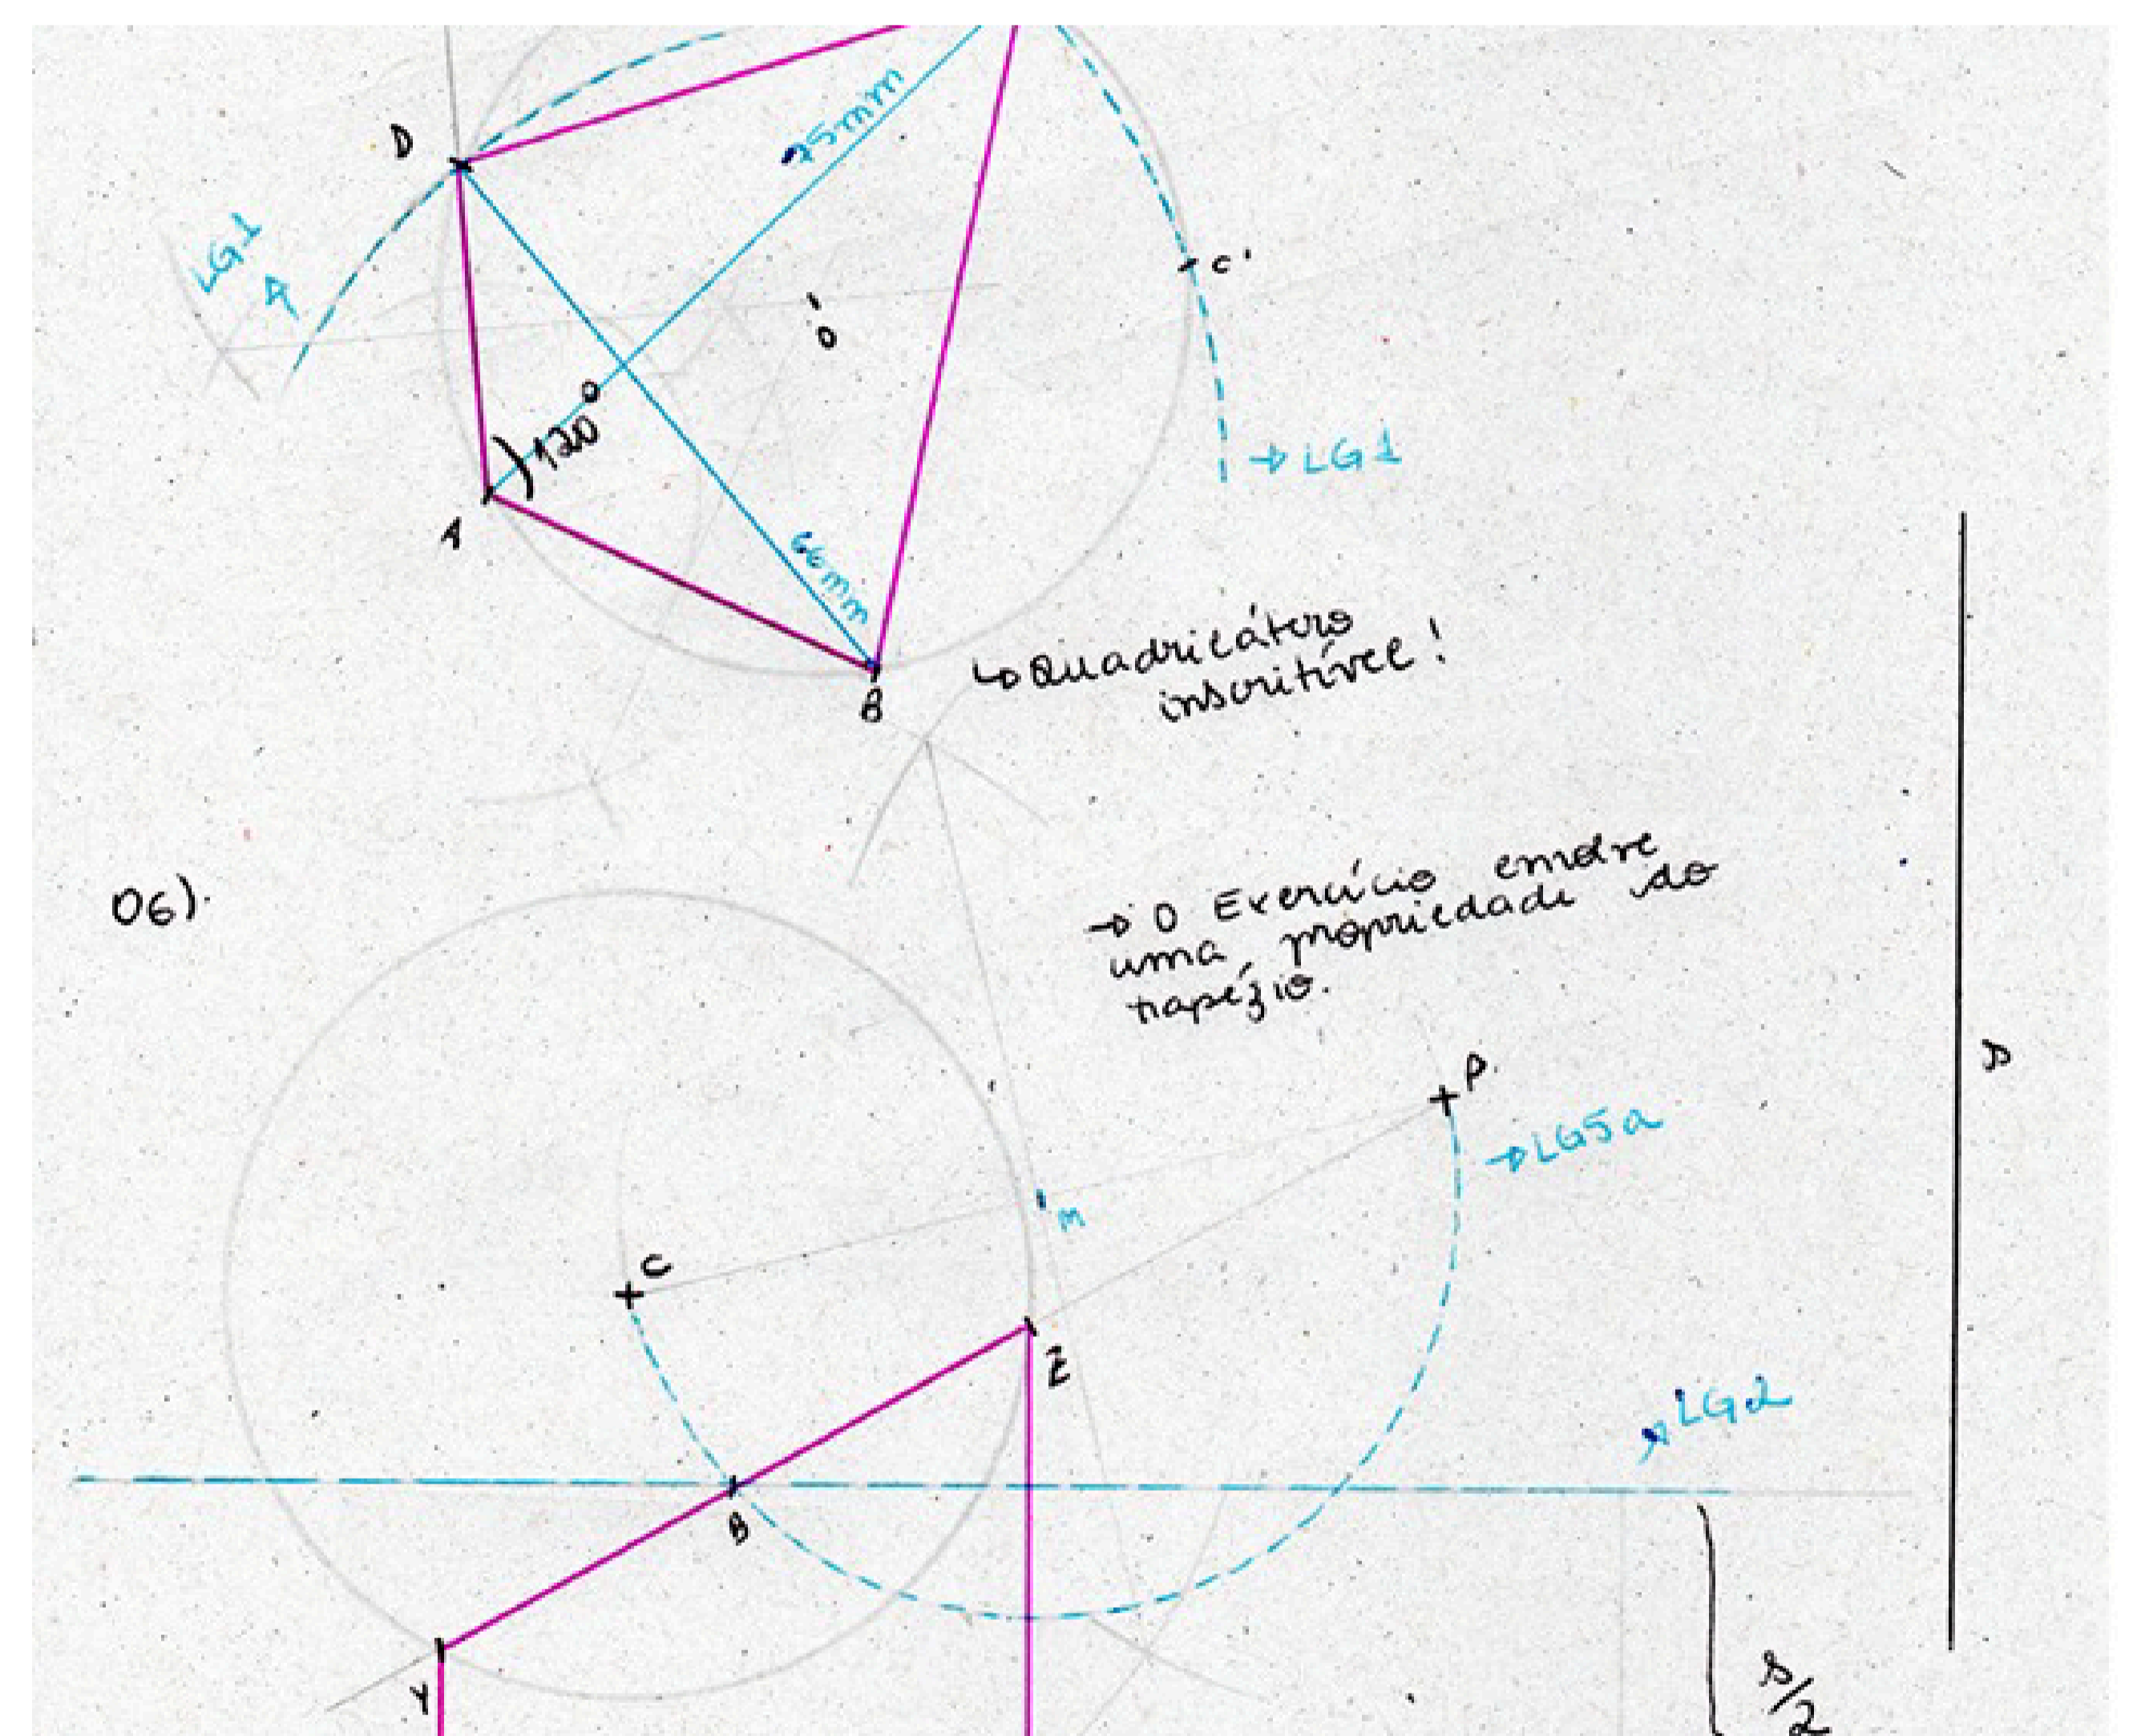 D
75mm
LG1
C'
O
120°
→ LG1
A
66mm
B
↳ Quadrilátero
inscritível!
06).
→ O Exercício
uma propriedade do
trapézio.
P.
→ LG5a
D
M
C
Z
LG2
B
Y
s/2